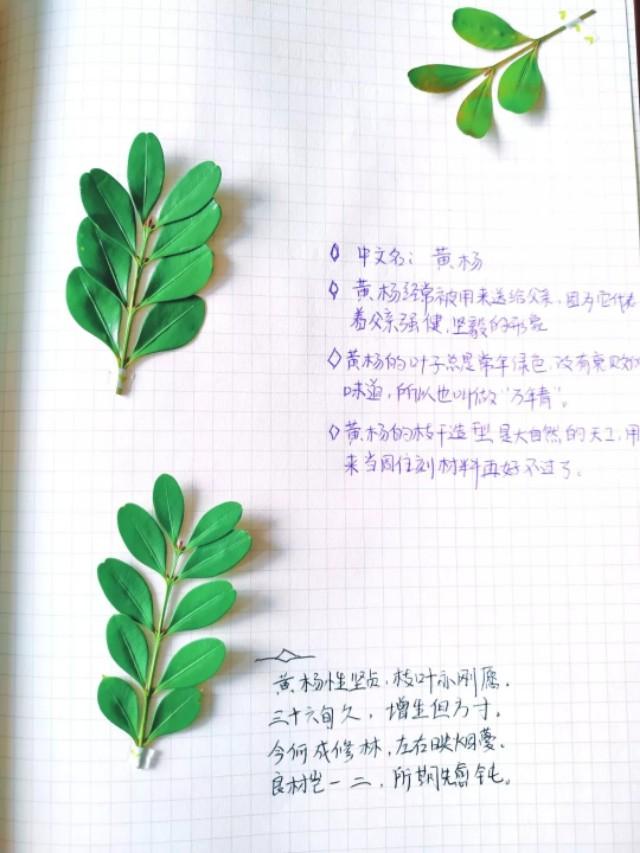 中文名: 黄杨
黄杨经常被用来送给父亲,因为它代表
着父亲强健,坚毅的形象
黄杨的叶子总是常年绿色,没有衰败的
味道,所以也叫做“万年青”。
黄杨的枝干造型是大自然的天工,用
来当 刻材料再好不过了。
黄杨性坚贞,枝叶亦刚愿。
三十六旬久,增生但方寸。
今何成修林,左右映烟蔓。
良材岂一二,所期先愈钝。